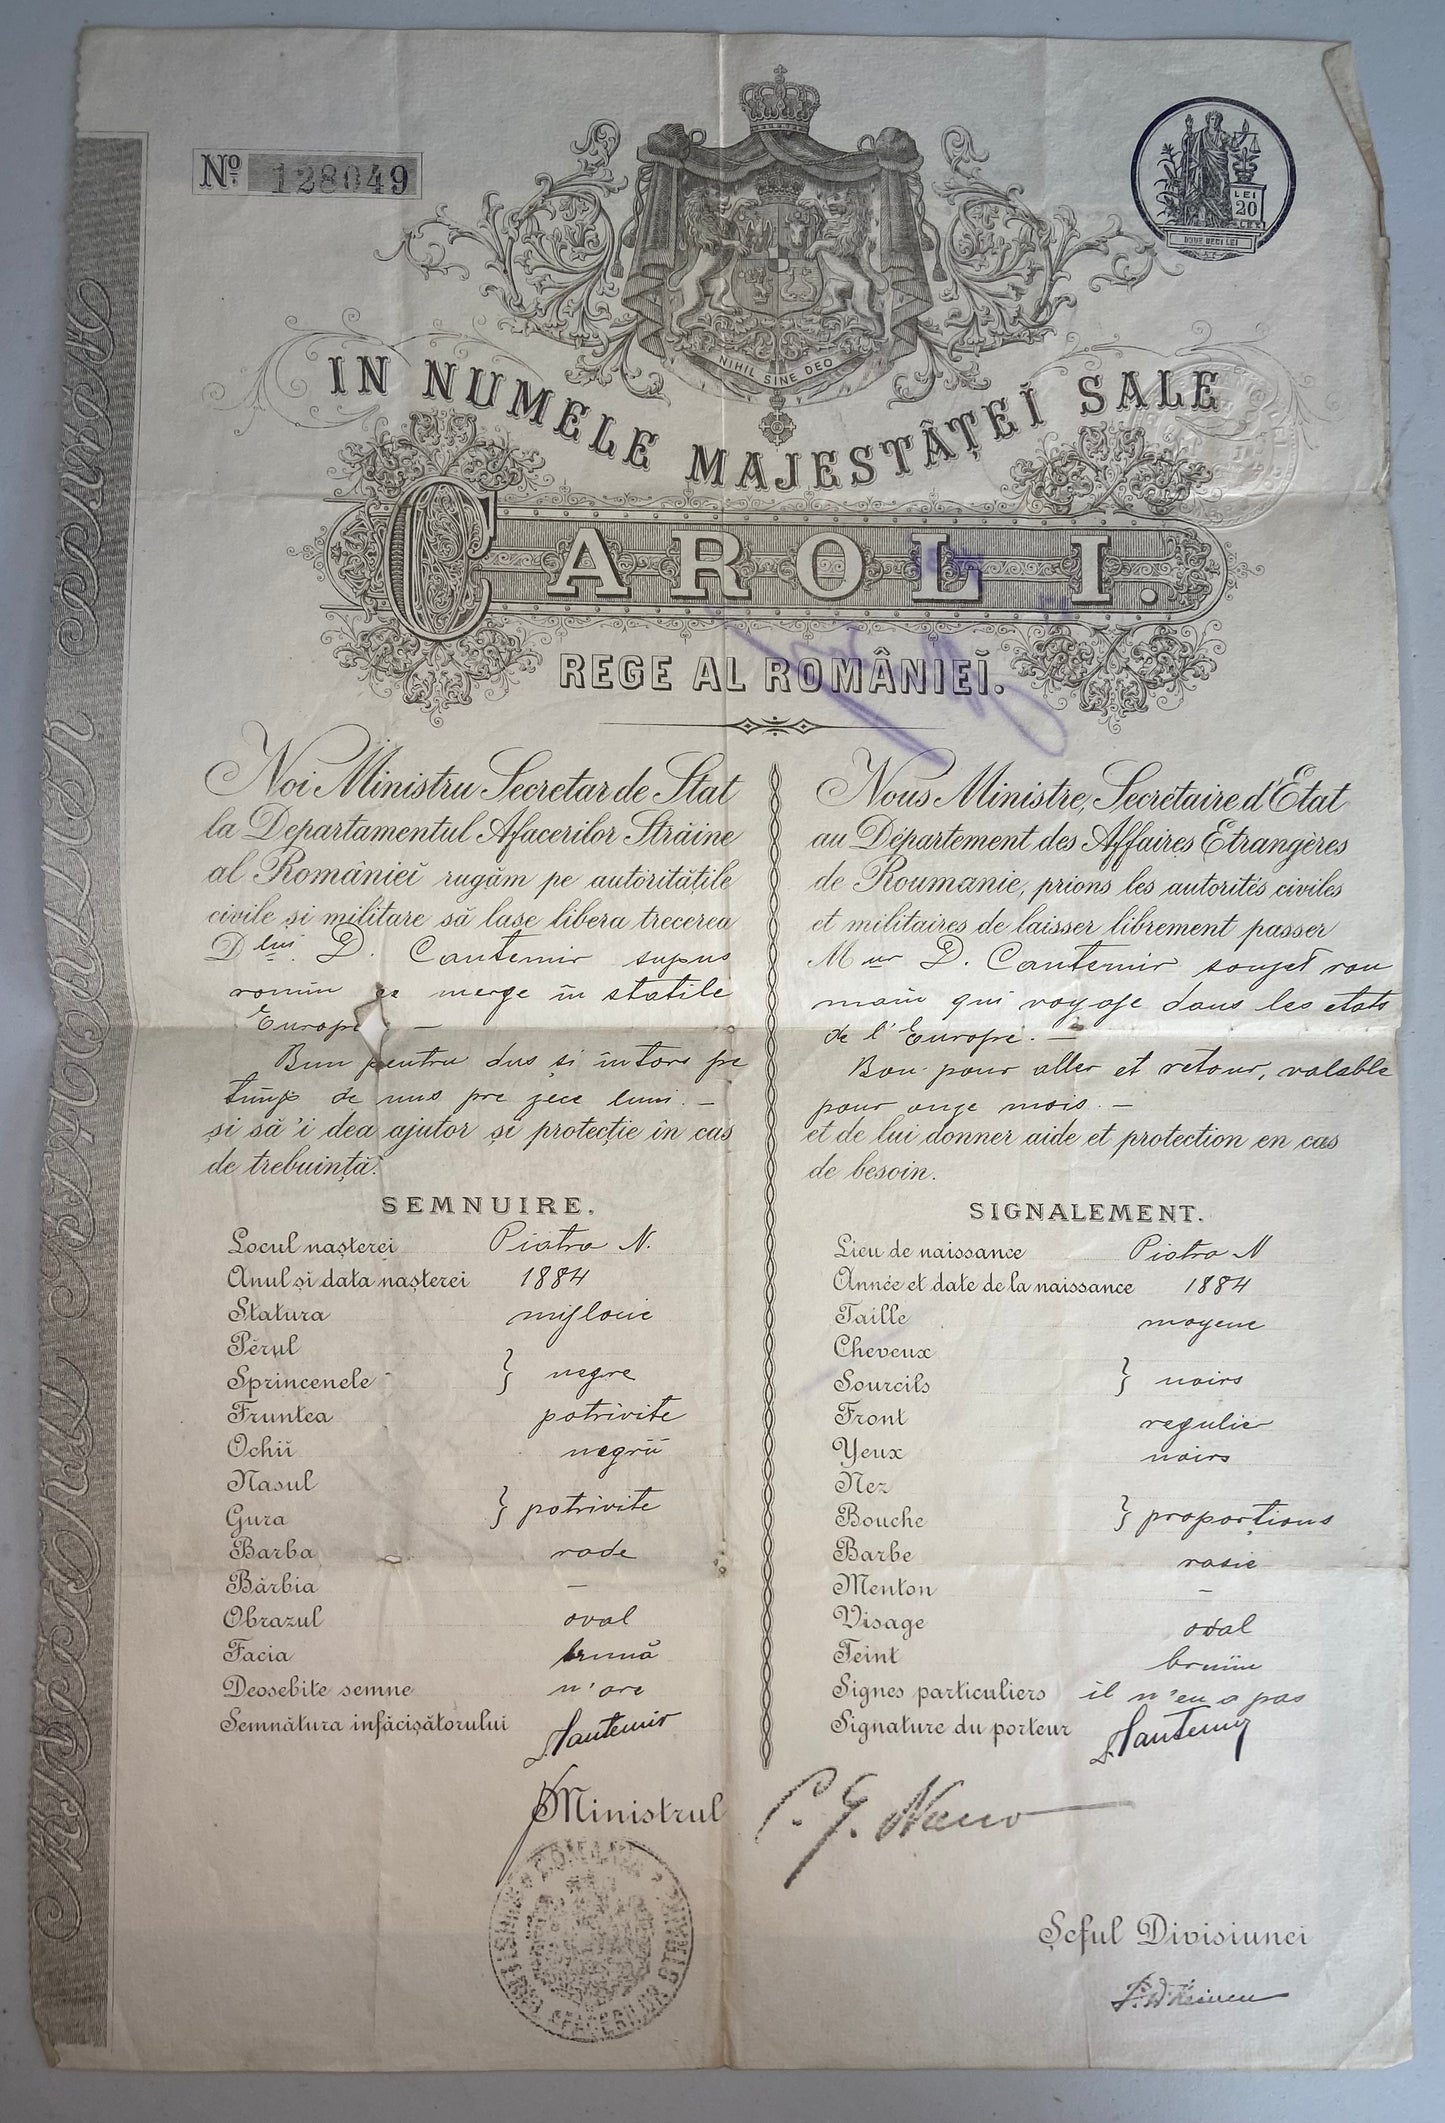 Nº 128049
LEI
20
DOUE DECI LEI
NIHIL SINE DEO
IN NUMELE MAJESTÂȚEĬ SALE
CAROL I.
REGE AL ROMÂNIEĬ.
Noi Ministru Secretar de Stat
la Departamentul Afacerilor Străine
al Româneĭ rugăm pe autoritățile
civile și militare să lase libera trecerea
Dlui D. Cantemir supus
romîn ce merge în statile
Europei —
Bun pentru dus și întors pe
timp de uns pre zece luni. —
și să 'i dea ajutor și protecție în cas
de trebuință.
SEMNUIRE.
Locul nașterei Piatra N.
Anul și data nașterei 1884
Statura mijlocie
Pĕrul
Sprincenele } negre
Fruntea potrivite
Ochii negrii
Nasul
Gura } potrivite
Barba rade
Bărbia —
Obrazul oval
Facia brună
Deosebite semne n'are
Semnătura infăcișătorului D. Cantemir
Nous Ministre, Secrétaire d'État
au Département des Affaires Etrangères
de Roumanie, prions les autorités civiles
et militaires de laisser librement passer
Mur D. Cantemir soujet rou
main qui voyage dans les etats
de l'Europe. —
Bon pour aller et retour, valable
pour onze mois. —
et de lui donner aide et protection en cas
de besoin.
SIGNALEMENT.
Lieu de naissance Piatra N
Année et date de la naissance 1884
Taille moyene
Cheveux
Sourcils } noirs
Front regulier
Yeux noirs
Nez
Bouche } proportions
Barbe rasie
Menton —
Visage oval
Teint brun
Signes particuliers il n'en a pas
Signature du porteur D. Cantemir
Ministrul
ROMANIA
MINISTERUL AFACERILOR STRAINE
Șeful Divisiunei